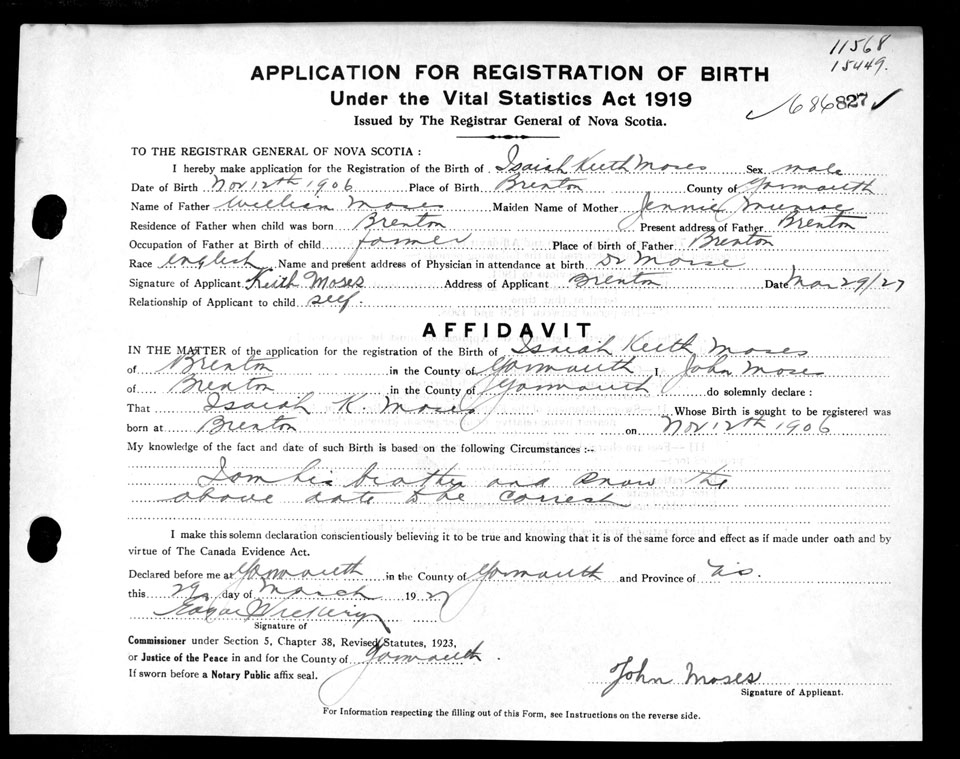 11568
15449.
APPLICATION FOR REGISTRATION OF BIRTH
Under the Vital Statistics Act 1919
686827 ✓
Issued by The Registrar General of Nova Scotia.
TO THE REGISTRAR GENERAL OF NOVA SCOTIA :
I hereby make application for the Registration of the Birth of Isaiah Keith Moses Sex male
Date of Birth Nov 12th 1906 Place of Birth Brenton County of Yarmouth
Name of Father William Moses Maiden Name of Mother Jennie Munroe
Residence of Father when child was born Brenton Present address of Father Brenton
Occupation of Father at Birth of child farmer Place of birth of Father Brenton
Race english Name and present address of Physician in attendance at birth Dr Morse
Signature of Applicant Keith Moses Address of Applicant Brenton Date Mar 29/27
Relationship of Applicant to child self.
AFFIDAVIT
IN THE MATTER of the application for the registration of the Birth of Isaiah Keith Moses
of Brenton in the County of Yarmouth I, John Moses
of Brenton in the County of Yarmouth do solemnly declare :
That Isaiah K. Moses Whose Birth is sought to be registered was
born at Brenton on Nov 12th 1906
My knowledge of the fact and date of such Birth is based on the following Circumstances :—
I am his brother and know the
above date to be correct
I make this solemn declaration conscientiously believing it to be true and knowing that it is of the same force and effect as if made under oath and by
virtue of The Canada Evidence Act.
Declared before me at Yarmouth in the County of Yarmouth and Province of N.S.
this 29 day of March 1927
Edgar
Signature of
Commissioner under Section 5, Chapter 38, Revised Statutes, 1923,
or Justice of the Peace in and for the County of Yarmouth.
If sworn before a Notary Public affix seal.
John Moses
Signature of Applicant.
For Information respecting the filling out of this Form, see Instructions on the reverse side.